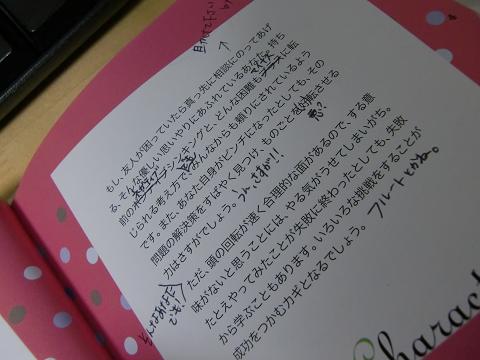 もし、友人が困っていたら真っ先に相談にのってあげ
る、そんな優しい思いやりにあふれているあなた。持ち
前のポジティブシンキングと、どんな困難もプラスに転
じられる考え方で、みんなからも頼りにされているよう
です。また、あなた自身がピンチになったとしても、その
問題の解決策をすばやく見つけ、ものごとを好転させる
力はさすがでしょう。
ただ、頭の回転が速く合理的な面があるので、する意
味がないと思うことには、やる気がうせてしまいがち。
たとえやってみたことが失敗に終わったとしても、失敗
から学ぶこともあります。いろいろな挑戦をすることが
成功をつかむカギとなるでしょう。
フルートとかね。
Charact